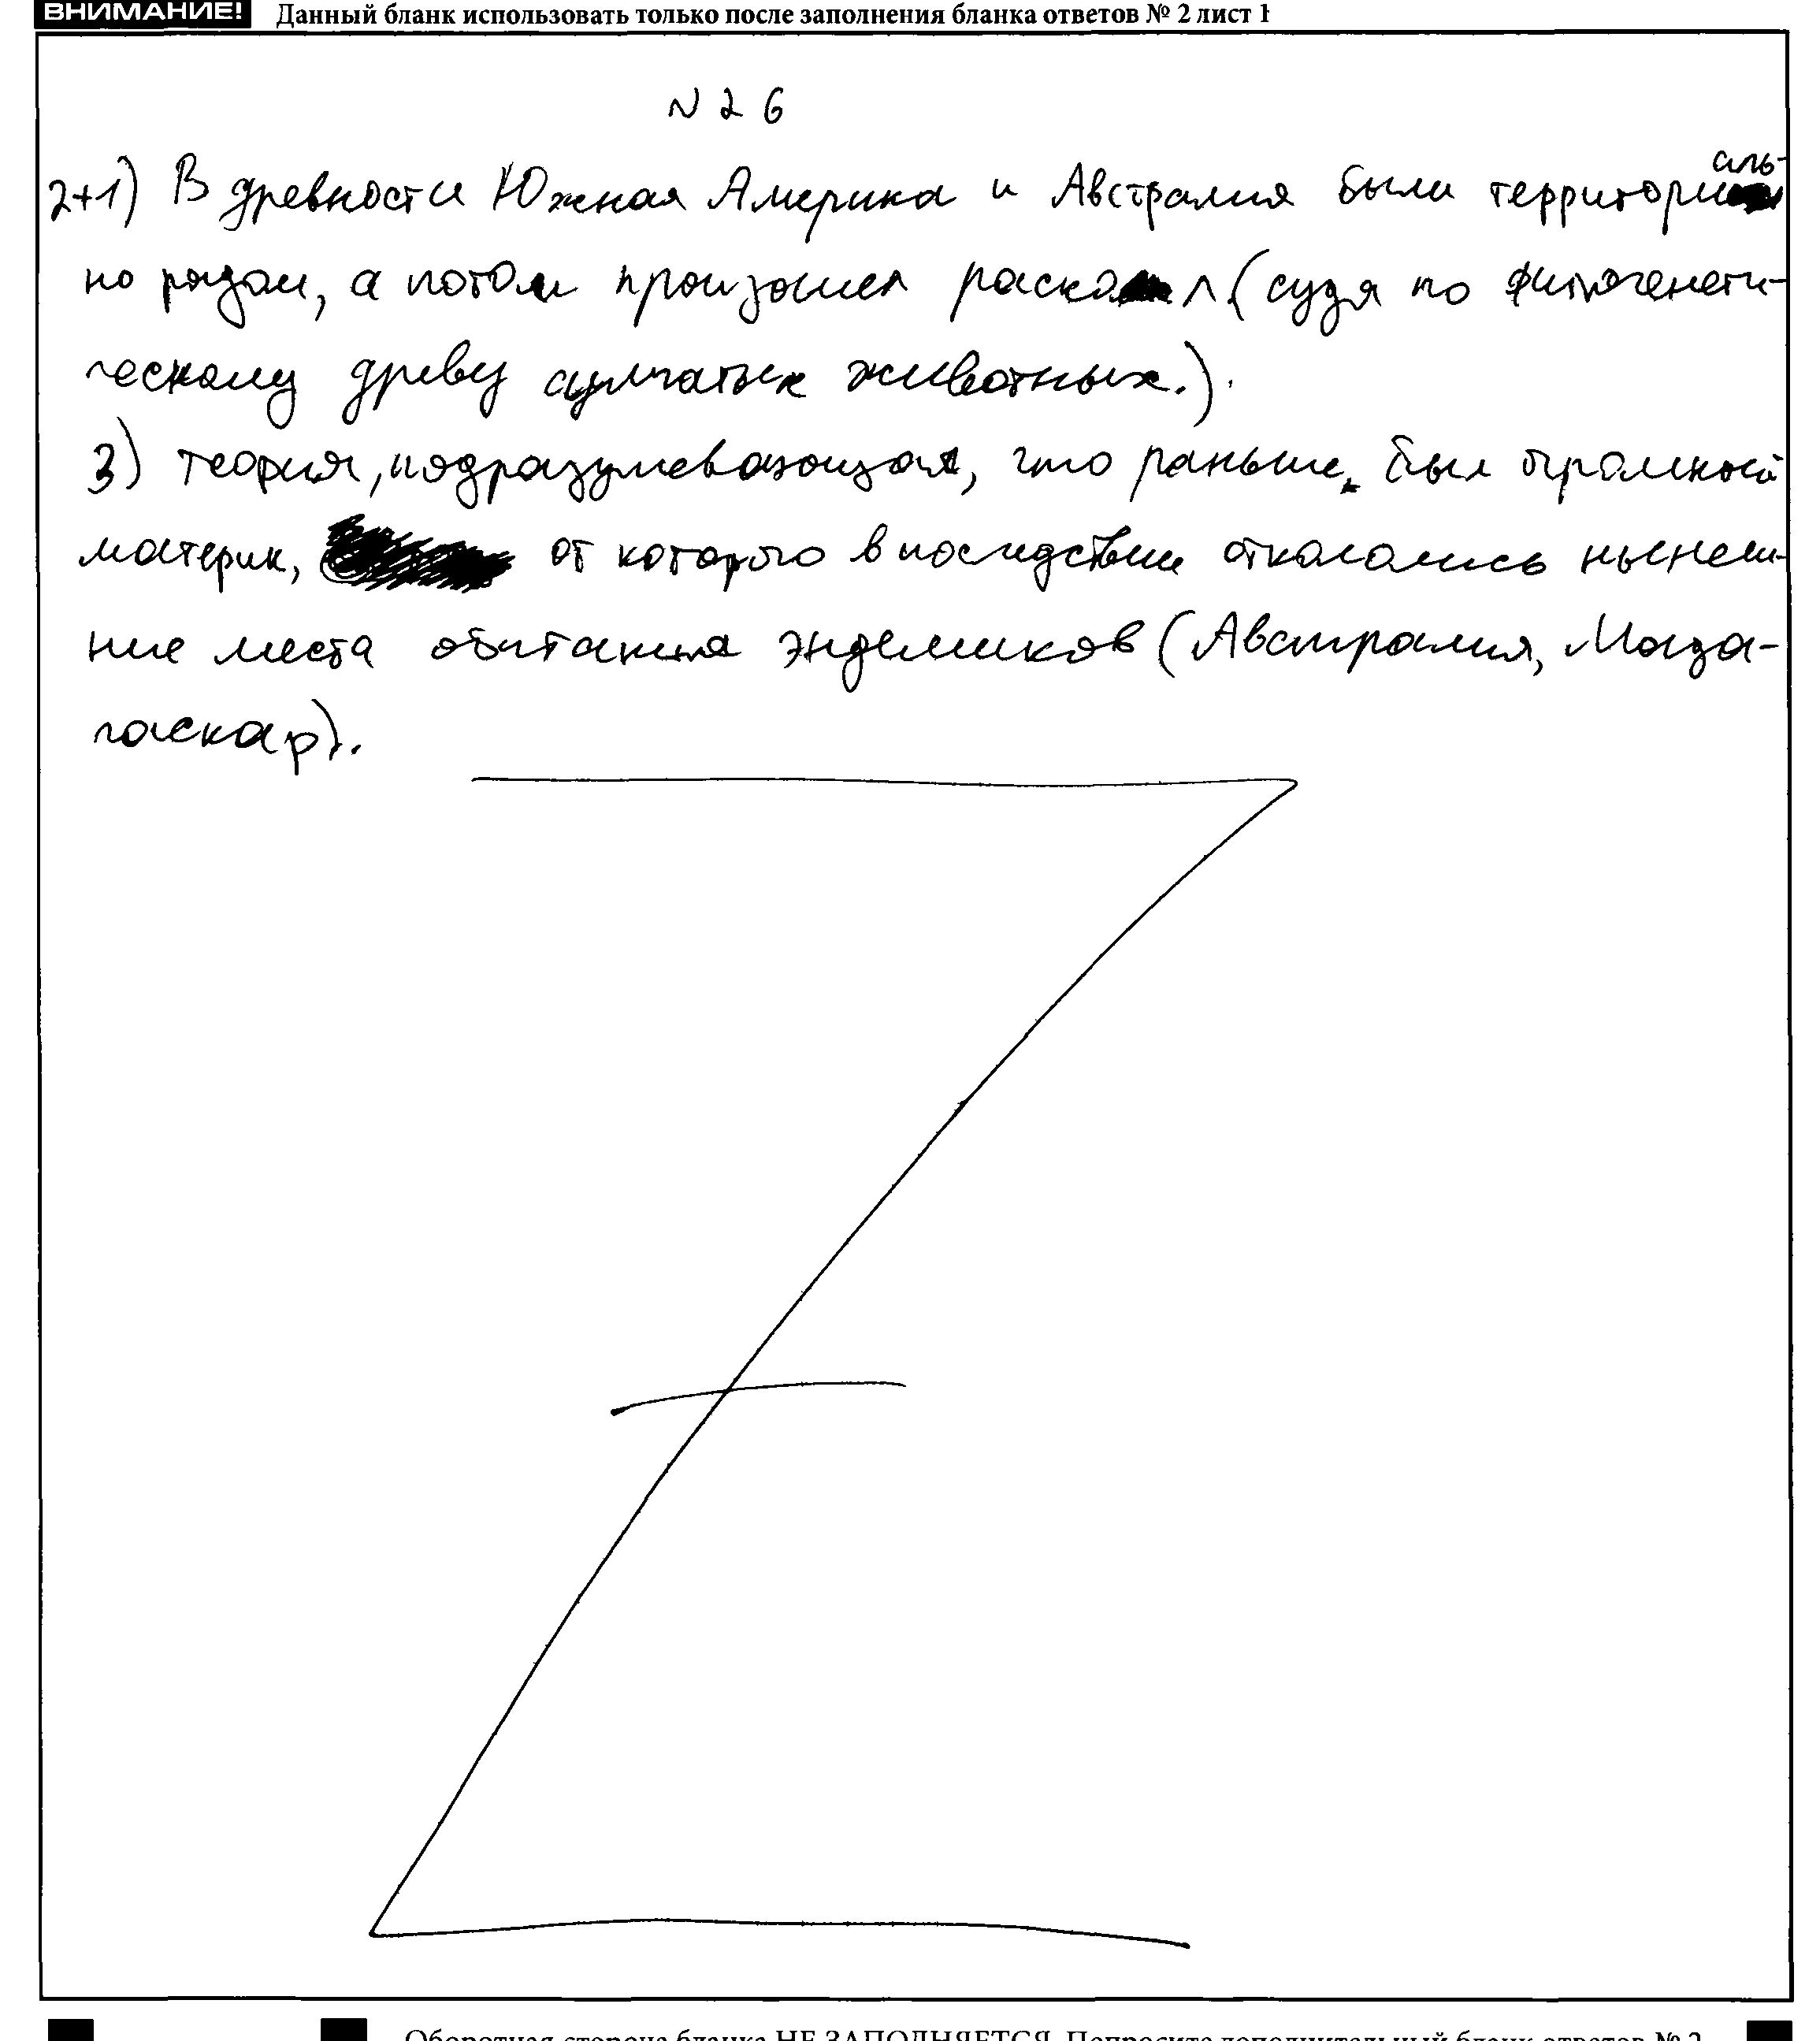 ВНИМАНИЕ! Данный бланк использовать только после заполнения бланка ответов № 2 лист 1
N 26
2+1) В древности Южная Америка и Австралия были территориаль-
но рядом, а потом произошел раскол (судя по филогенети-
ческому древу сумчатых животных.).
3) теория, подразумевающая, что раньше был огромный
материк, от которого в последствие откололись нынеш-
ние места обитания эндемиков (Австралия, Мада-
гаскар).
Оборотная сторона бланка НЕ ЗАПОЛНЯЕТСЯ. Попросите дополнительный бланк ответов № 2